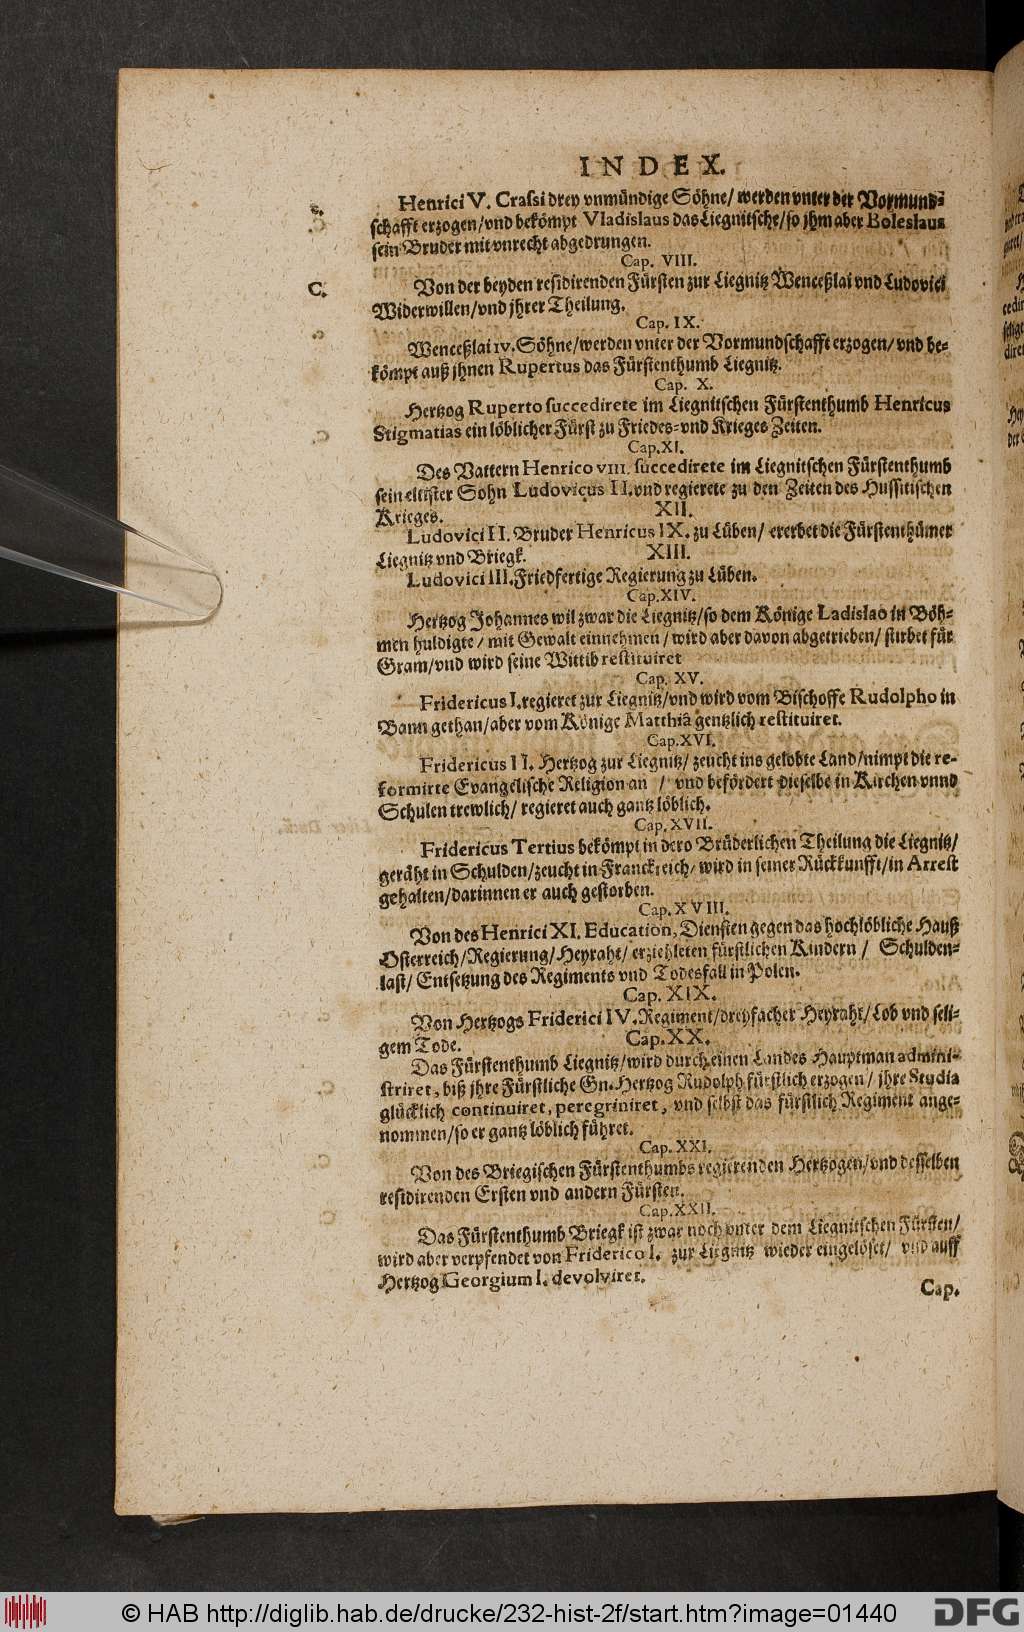 INDEX.
Henrici V. Crassi drey vnmündige Söhne/ werden vnter der Vormund-
schafft erzogen/vnd bekömpt Vladislaus das Liegnitsche/so jhm aber Boleslaus
sein Bruder mit vnrecht abgedrungen.
Cap. VIII.
C.
Von der beyden residirenden Fürsten zur Liegnitz Wenceßlai vnd Ludovici
Widerwillen/vnd jhrer Theilung.
Cap. IX.
Wenceßlai IV. Söhne/werden vnter der Vormundschafft erzogen/ vnd be-
kömpt auß jhnen Rupertus das Fürstenthumb Liegnitz.
Cap. X.
Hertzog Ruperto succedirete im Liegnitschen Fürstenthumb Henricus
Stigmatias ein löblicher Fürst zu Friedes-vnd Krieges Zeiten.
Cap. XI.
Des Vattern Henrico VIII. succedirete im Liegnitschen Fürstenthumb
sein eltister Sohn Ludovicus II. vnd regierete zu den Zeiten des Hussitischen
Krieges.
XII.
Ludovici II. Bruder Henricus IX. zu Lüben/ ererbet die Fürstenthümer
Liegnitz vnd Briegk.
XIII.
Ludovici III. Friedfertige Regierung zu Lüben.
Cap. XIV.
Hertzog Johannes wil zwar die Liegnitz/so dem Könige Ladislao in Böh-
men huldigte/ mit Gewalt einnehmen/ wird aber davon abgetrieben/ stirbet für
Gram/vnd wird seine Wittib restituiret
Cap. XV.
Fridericus I. regieret zur Liegnitz/vnd wird vom Bischoffe Rudolpho in
Bann gethan/aber vom Könige Matthiâ gentzlich restituiret.
Cap. XVI.
Fridericus II. Hertzog zur Liegnitz/ zeucht ins gelobte Land/nimpt die re-
formirte Evangelische Religion an / vnd befördert dieselbe in Kirchen vnnd
Schulen trewlich/ regieret auch gantz löblich.
Cap. XVII.
Fridericus Tertius bekömpt in dero Brüderlichen Theilung die Liegnitz/
geräht in Schulden/zeucht in Franckreich/ wird in seiner Rückkunfft/in Arrest
gehalten/darinnen er auch gestorben.
Cap. XVIII.
Von des Henrici XI. Education, Diensten gegen das hochlöbliche Hauß
Osterreich/Regierung/Heyraht/ erziehleten fürstlichen Kindern/ Schulden-
last/ Entsetzung des Regiments vnd Todesfall in Polen.
Cap. XIX.
Von Hertzogs Friderici IV. Regiment/dreyfacher Heyraht/Lob vnd seli-
gem Tode.
Cap. XX.
Das Fürstenthumb Liegnitz/wird durch einen Landes Hauptman admini-
striret, biß jhre Fürstliche Gn. Hertzog Rudolph fürstlich erzogen/ jhre Studia
glücklich continuiret, peregriniret, vnd selbst das fürstlich Regiment ange-
nommen/so er gantz löblich führet.
Cap. XXI.
Von des Briegischen Fürstenthumbs regierenden Hertzogen/vnd desselben
residirenden Ersten vnd andern Fürsten.
Cap. XXII.
Das Fürstenthumb Briegk ist zwar noch vnter dem Liegnitschen Fürsten/
wird aber verpfendet von Friderico I. zur Liegnitz wieder eingelöset/ vnd auff
Hertzog Georgium I. devolviret.
Cap.
© HAB http://diglib.hab.de/drucke/232-hist-2f/start.htm?image=01440
DFG